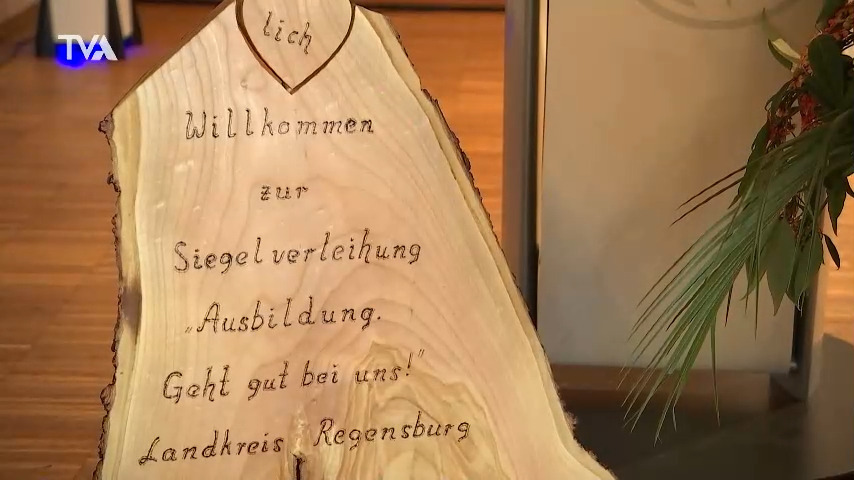 TVA
lich
Willkommen
zur
Siegelverleihung
„Ausbildung.
Geht gut bei uns!"
Landkreis Regensburg